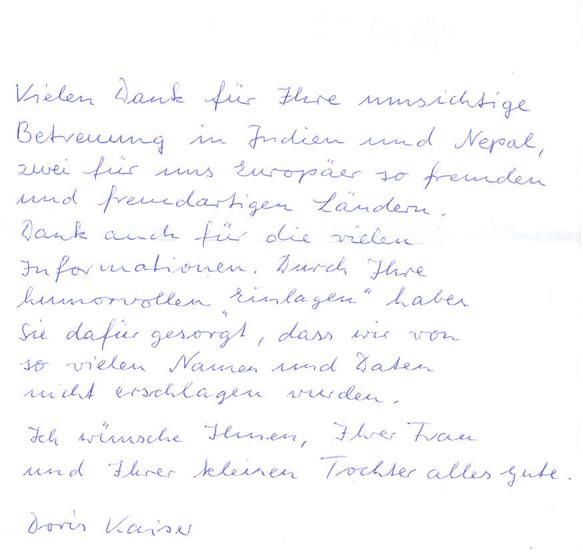 Vielen Dank für Ihre umsichtige
Betreuung in Indien und Nepal,
zwei für uns Europäer so fremden
und fremdartigen Ländern.
Dank auch für die vielen
Informationen. Durch Ihre
humorvollen „Einlagen“ haben
Sie dafür gesorgt, dass wir von
so vielen Namen und Daten
nicht erschlagen wurden.
Ich wünsche Ihnen, Ihrer Frau
und Ihrer kleinen Tochter alles Gute.
Doris Kaiser